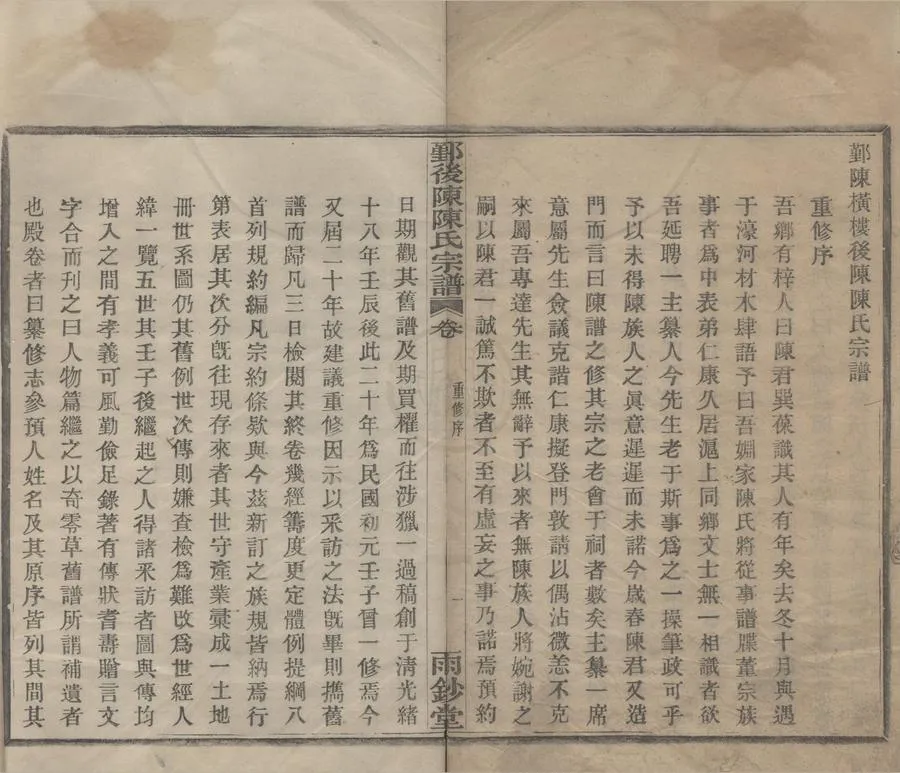 鄞陳橫樓後陳陳氏宗譜
重修序
吾鄉有梓人曰陳君巽葆識其人有年矣去冬十月與遇
于濠河材木肆語予曰吾婣家陳氏將從事譜牒董宗族
事者爲中表弟仁康久居滬上同鄉文士無一相識者欲
吾延聘一主纂人今先生老于斯事爲之一操筆政可乎
予以未得陳族人之眞意遲遲而未諾今歲春陳君又造
門而言曰陳譜之修其宗之老會于祠者數矣主纂一席
意屬先生僉議克諧仁康擬登門敦請以偶沾微恙不克
來屬吾專達先生其無辭予以來者無陳族人將婉謝之
嗣以陳君一誠篤不欺者不至有虛妄之事乃諾焉預約
鄞後陳陳氏宗譜
卷
重修序
一
雨鈔堂
日期觀其舊譜及期買櫂而往涉獵一過稿創于淸光緒
十八年壬辰後此二十年爲民國初元壬子曾一修焉今
又屆二十年故建議重修因示以釆訪之法旣畢則攜舊
譜而歸凡三日檢閱其終卷幾經籌度更定體例提綱八
首列規約編凡宗約條欵與今茲新訂之族規皆納焉行
第表居其次分旣往現存來者其世守產業彙成一土地
冊世系圖仍其舊例世次傳則嫌查檢爲難改爲世經人
緯一覽五世其壬子後繼起之人得諸釆訪者圖與傳均
增入之間有孝義可風勤儉足錄著有傳狀耆壽贈言文
字合而刊之曰人物篇繼之以奇零草舊譜所謂補遺者
也殿卷者曰纂修志參預人姓名及其原序皆列其間其